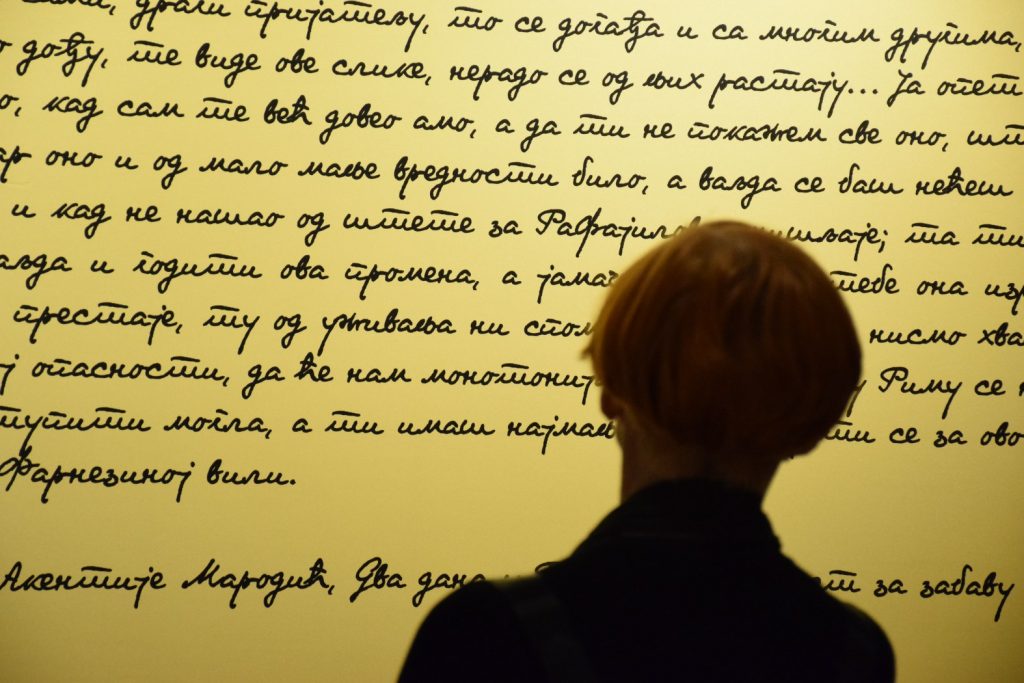 драги пријатељу, то се догађа и са многим другима,
дођу, те виде ове слике, нерадо се од њих растају... Ја опет
кад сам те већ довео амо, а да ти не покажем све оно,
оно и од мало мање вредности било, а ваљда се баш нећеш
и кад не нашао од штете за Рафајилове та ти
и годити ова промена, а тебе она
престаје, ту од уживања ни нисмо
опасности, да ће нам Риму се
могла, а ти имаш се за ово
Фарнезиној вили.
Акентије Мародић, Два дана за забаву